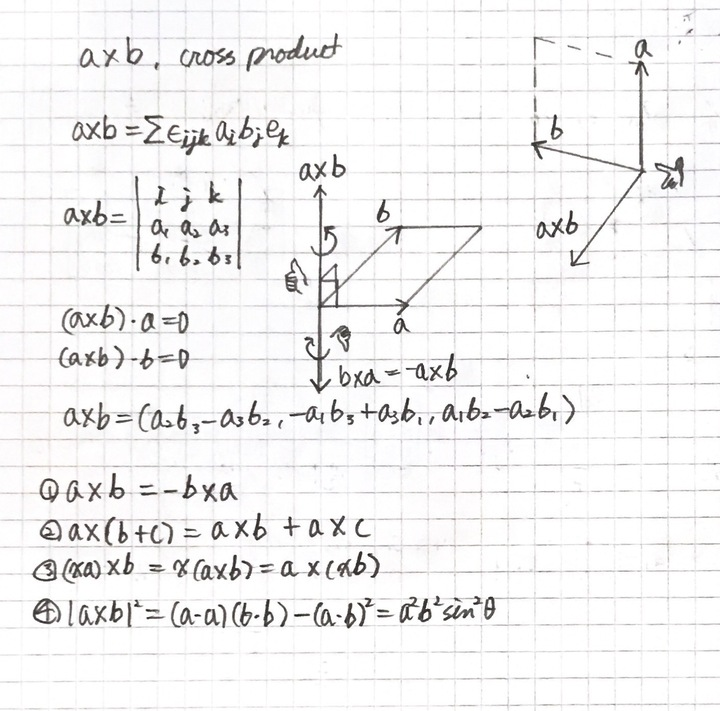 a×b, cross product
a×b = Σ ϵijk ai bj ek
a×b = | i j k |
| a₁ a₂ a₃ |
| b₁ b₂ b₃ |
(a×b)·a=0
(a×b)·b=0
a×b
b
a
b×a = -a×b
a
b
a×b
a×b = (a₂b₃-a₃b₂, -a₁b₃+a₃b₁, a₁b₂-a₂b₁)
① a×b = -b×a
② a×(b+c) = a×b + a×c
③ (αa)×b = α(a×b) = a×(αb)
④ |a×b|² = (a·a)(b·b)-(a·b)² = a²b² sin²θ